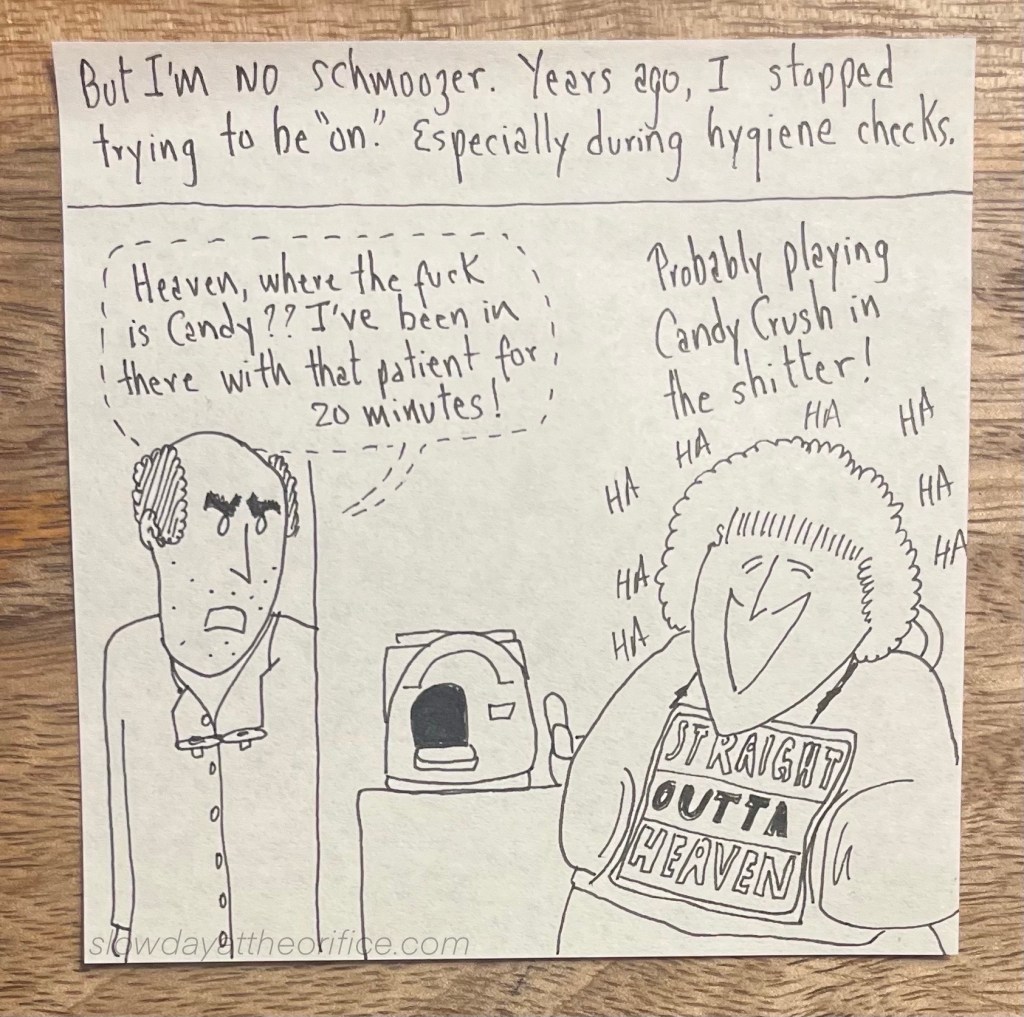 But I'm no schmoozer. Years ago, I stopped
trying to be "on." Especially during hygiene checks.
Heaven, where the fuck
is Candy?? I've been in
there with that patient for
20 minutes!
Probably playing
Candy Crush in
the shitter!
HA
HA
HA
HA
HA
HA
HA
HA
STRAIGHT
OUTTA
HEAVEN
slowdayattheorifice.com